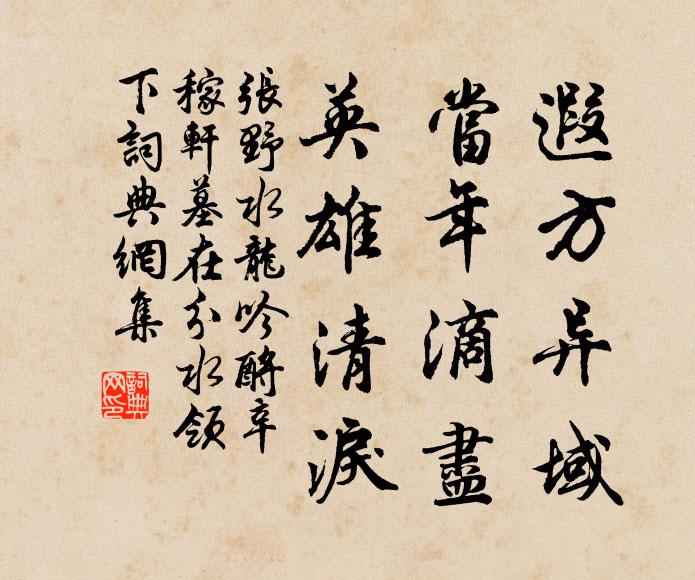 遐方异域
當年滴盡
英雄清淚
張野水龍吟酹辛
稼軒墓在分水領
下詞典網集
詞典網印